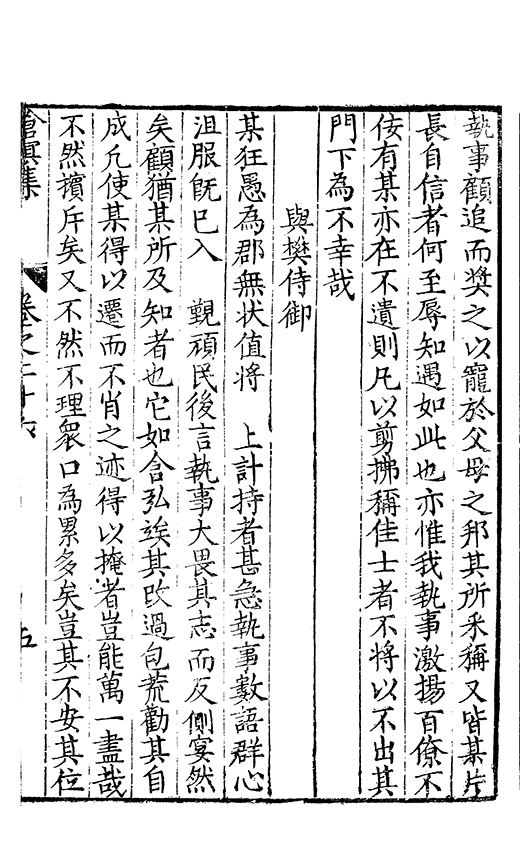 執事顧追而奬之以寵於父母之邦其所采稱又皆某片
長自信者何至辱知遇如此也亦惟我執事激揚百僚不
佞有某亦在不遺則凡以剪拂稱佳士者不將以不出其
門下為不幸哉
與樊侍御
某狂愚為郡無状值將　上計持者甚急執事數語群心
沮服旣已入　覲頑民後言執事大畏其志而反側宴然
矣顧猶某所及知者也它如含弘竢其改過包荒勸其自
成凢使某得以遷而不肖之迹得以掩者豈能萬一盡哉
不然擯斥矣又不然不理衆口為累多矣豈其不安其位
滄溟集
卷之二十六
五